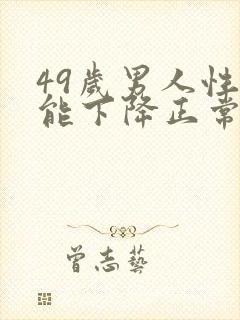 49歲男人性
能下降正常
曾志藝